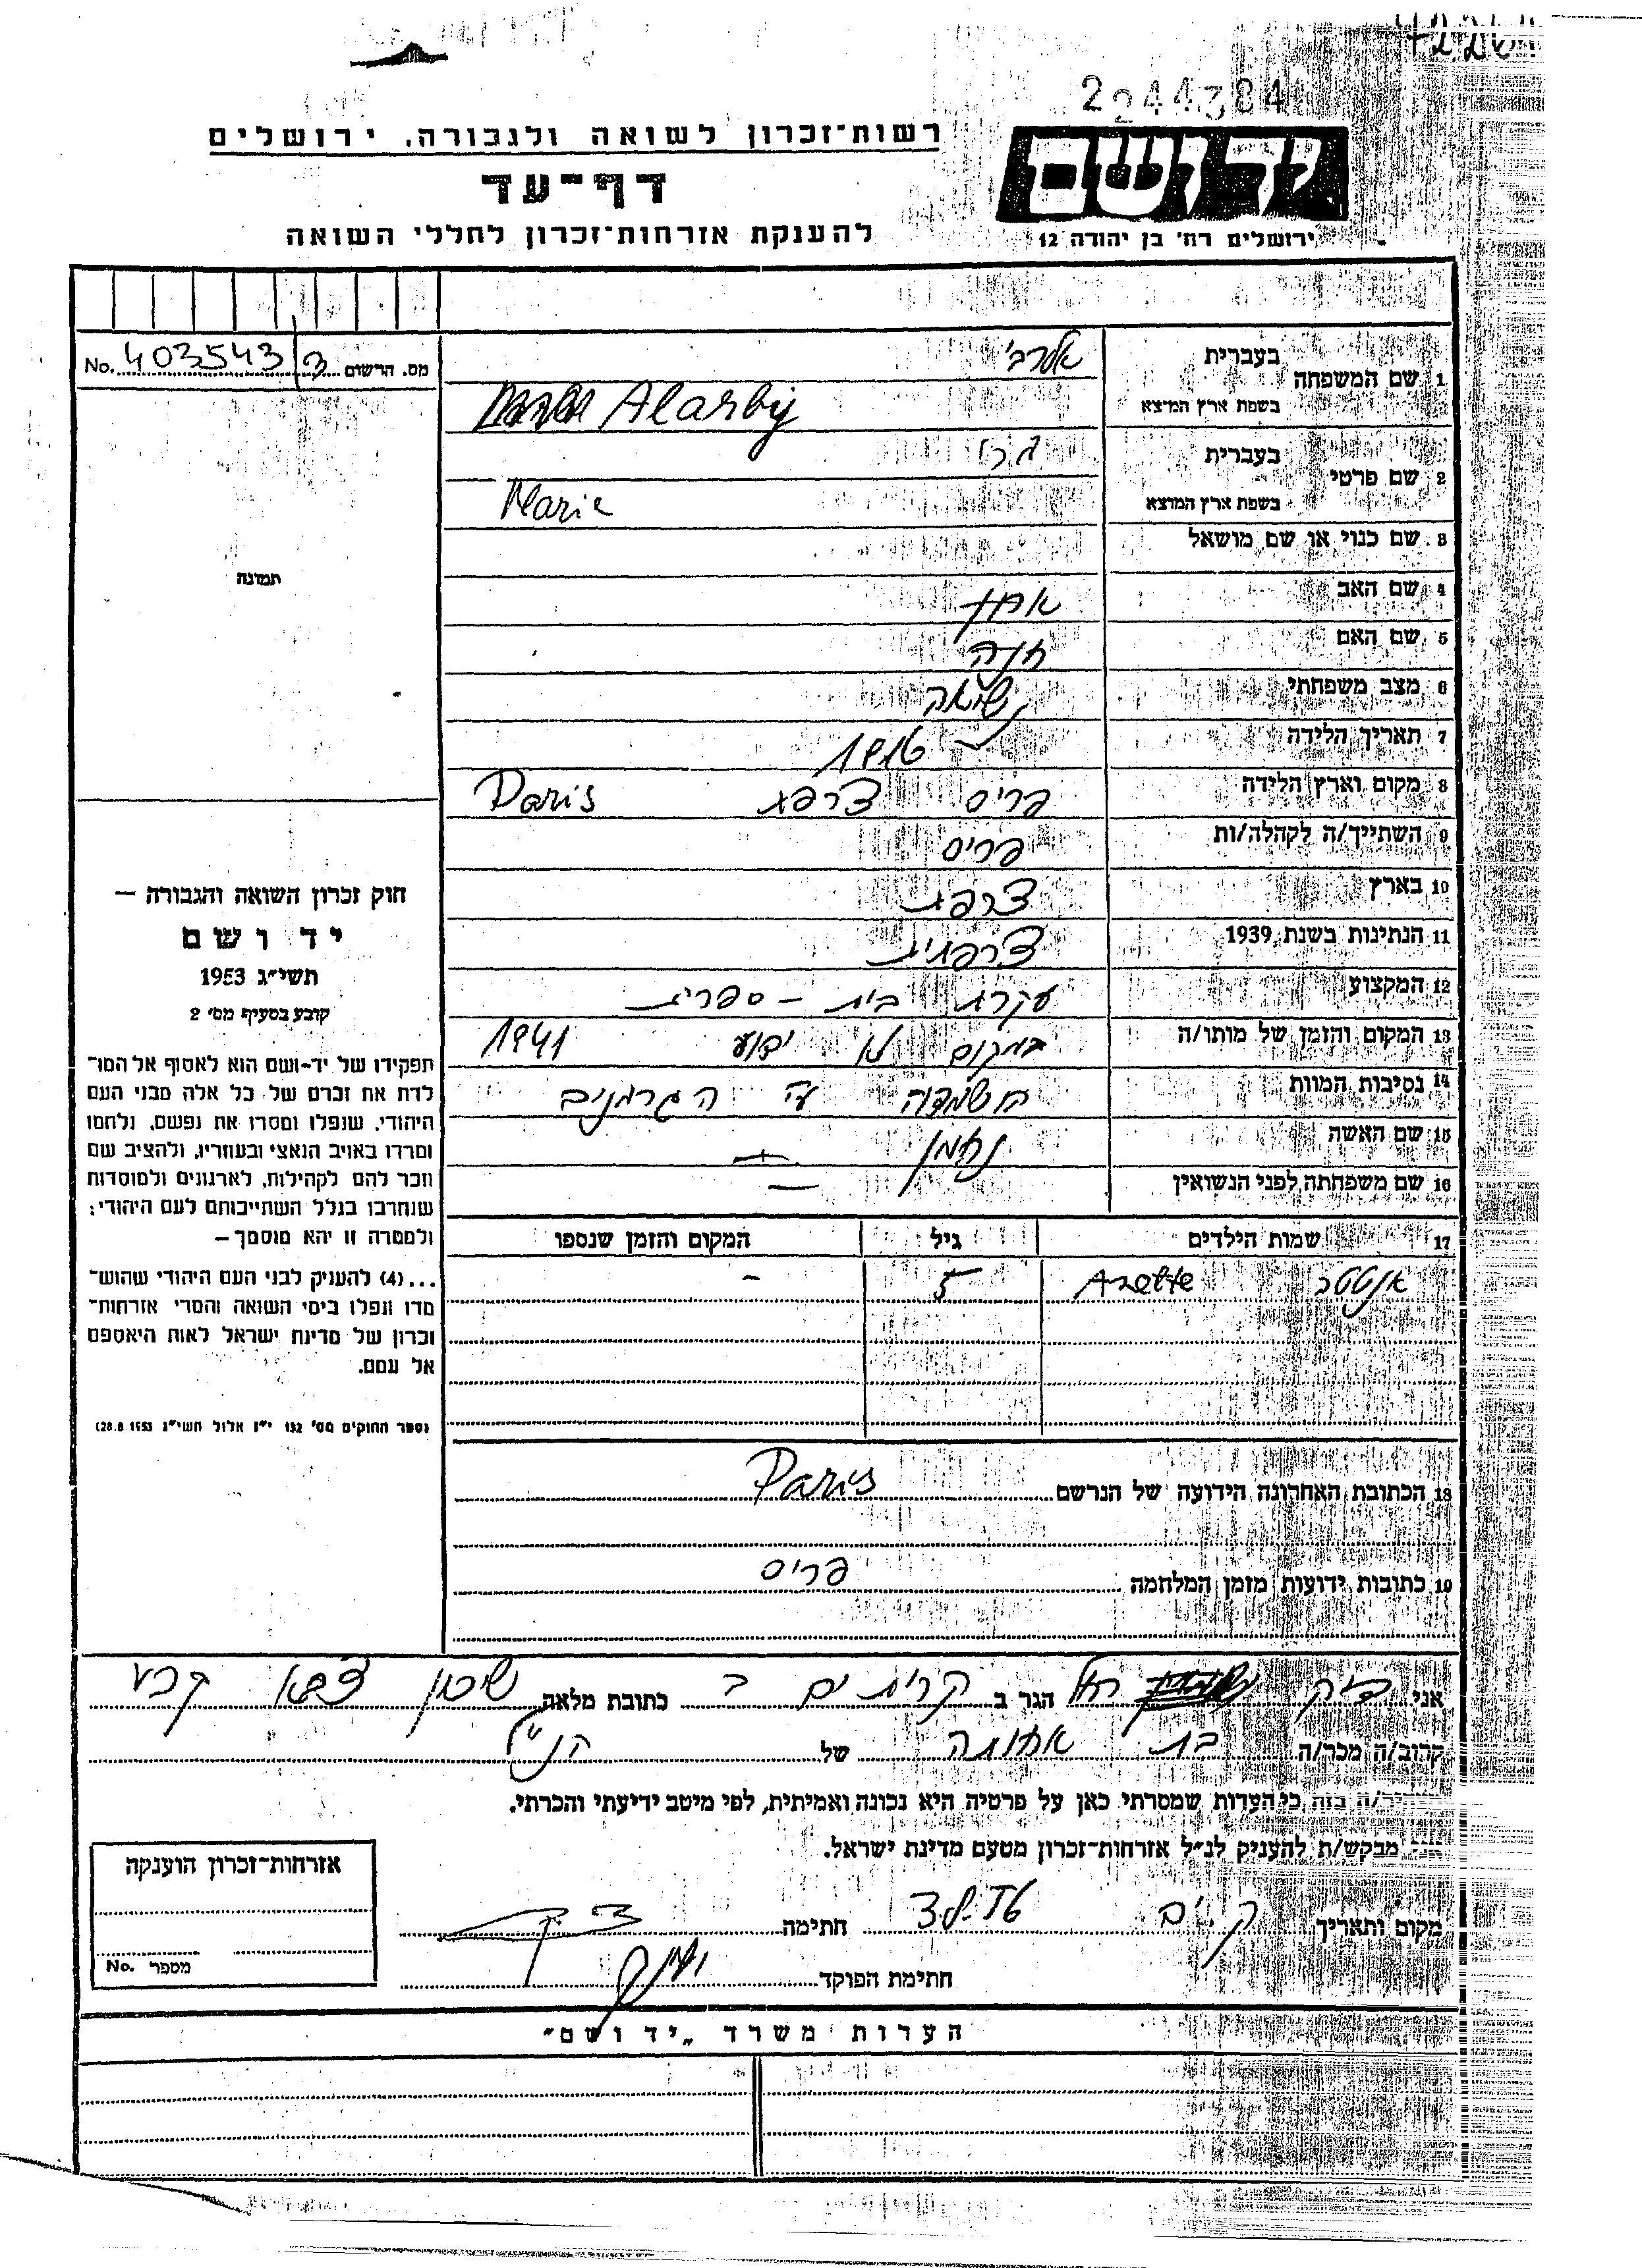 2244384
רשות־זכרון לשואה ולגבורה, ירושלים
דף־עד
להענקת אזרחות־זכרון לחללי השואה
יד ושם
ירושלים רח' בן יהודה 12
מס. הרשום 403543 No.
1 שם המשפחה
בעברית
בשפת ארץ המוצא Alarbij
2 שם פרטי
בעברית
בשפת ארץ המוצא Marie
3 שם כנוי או שם מושאל
4 שם האב אהרן
5 שם האם חנה
6 מצב משפחתי נשואה
7 תאריך הלידה
8 מקום וארץ הלידה פריס צרפת Paris
9 השתייך/ה לקהלה/ות פריס
10 בארץ צרפת
11 הנתינות בשנת 1939 צרפתית
12 המקצוע עקרת בית - ספרית
13 המקום והזמן של מותו/ה במקום לא ידוע 1941
14 נסיבות המוות הושמדה ע"י הגרמנים
15 שם האשה נחמן
16 שם משפחתה לפני הנשואין —
17 שמות הילדים גיל המקום והזמן שנספו
Arlette 5 -
18 הכתובת האחרונה הידועה של הנרשם Paris
19 כתובות ידועות מזמן המלחמה פריס
תמונה
חוק זכרון השואה והגבורה —
יד ושם
תשי"ג 1953
קובע בסעיף מס' 2
תפקידו של יד-ושם הוא לאסוף אל המו־
לדת את זכרם של כל אלה מבני העם
היהודי, שנפלו ומסרו את נפשם, נלחמו
ומרדו באויב הנאצי ובעוזריו, ולהציב שם
וזכר להם לקהילות, לארגונים ולמוסדות
שנחרבו בגלל השתייכותם לעם היהודי;
ולמטרה זו יהא מוסמך —
...(4) להעניק לבני העם היהודי שהוש־
מדו ונפלו בימי השואה והמרי אזרחות־
זכרון של מדינת ישראל לאות היאספם
אל עמם.
(ספר החוקים מס' 132 י"ז אלול תשי"ג 28.8.1953)
אני רחל הגר ב קרית ים ב כתובת מלאה שיכון
קרוב/ה מכר/ה בת אחותה של הנ"ל
בזה כי העדות שמסרתי כאן על פרטיה היא נכונה ואמיתית, לפי מיטב ידיעתי והכרתי.
מבקש/ת להעניק לנ"ל אזרחות־זכרון מטעם מדינת ישראל.
מקום ותאריך ק. ים חתימה
חתימת הפוקד
אזרחות־זכרון הוענקה
מספר No.
הערות משרד „יד ושם"